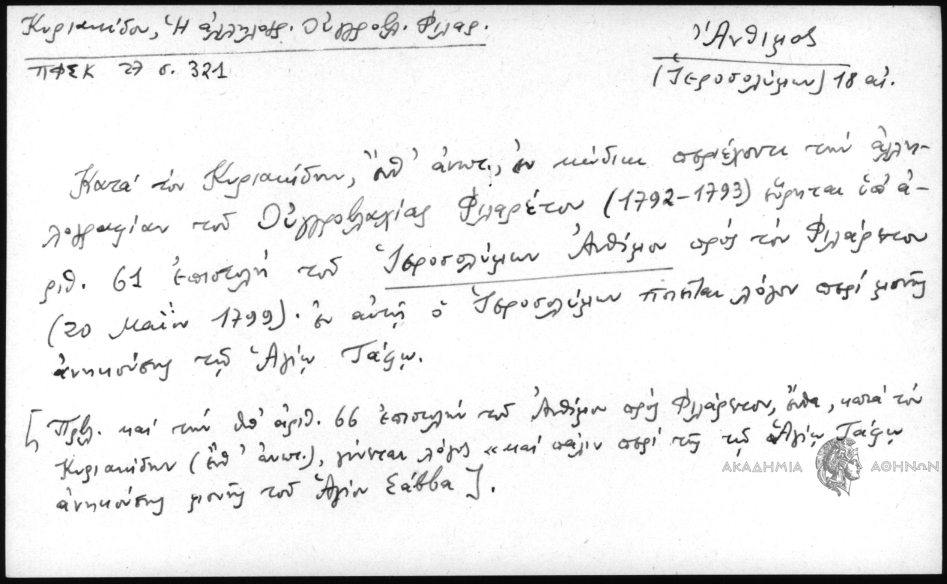 Κυριακίδου, Ἡ ἀλληλογρ. Οὑγγροβλ. Φιλαρ.
ΠΦΣΚ 27 σ. 321
Ἄνθιμος
(Ἱεροσολύμων) 18 αἰ.
Κατὰ τὸν Κυριακίδην, ἔνθ' ἀνωτ., ἐν κώδικι περιέχοντι τὴν ἀλλη-
λογραφίαν τοῦ Οὑγγροβλαχίας Φιλαρέτου (1792-1793) εὕρηται ὑπ' ἀ-
ριθ. 61 ἐπιστολὴ τοῦ Ἱεροσολύμων Ἀνθίμου πρὸς τὸν Φιλάρετον
(20 Μαΐου 1799). ἐν αὐτῇ ὁ Ἱεροσολύμων ποιεῖται λόγον περὶ μονῆς
ἀνηκούσης τῷ Ἁγίῳ Τάφῳ.
[Πρβλ. καὶ τὴν ὑπ' ἀριθ. 66 ἐπιστολὴν τοῦ Ἀνθίμου πρὸς Φιλάρετον, ἔνθα, κατὰ τὸν
Κυριακίδην (ἔνθ' ἀνωτ.), γίνεται λόγος «καὶ πάλιν περὶ τῆς τῷ Ἁγίῳ Τάφῳ
ἀνηκούσης μονῆς τοῦ Ἁγίου Σάββα].
ΑΚΑΔΗΜΙΑ ΑΘΗΝΩΝ